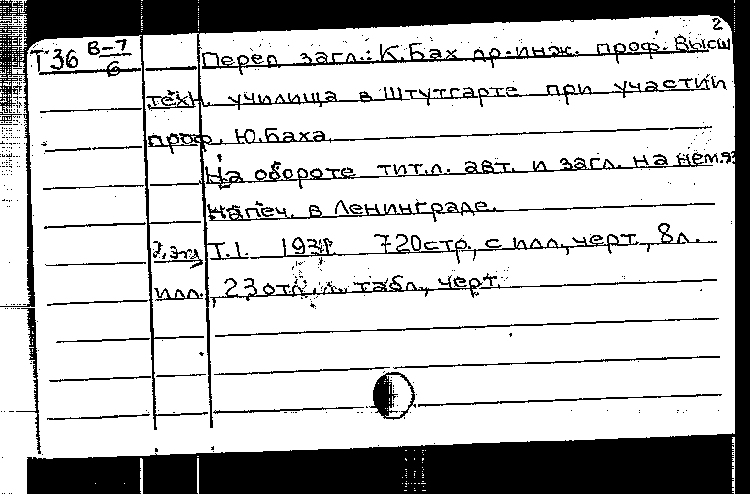 2
Т36 В-7/6 Перед загл.: К. Бах др-инж. проф. Высш
техн. училища в Штутгарте при участии
проф. Ю. Баха.
На обороте тит. л. авт. и загл. на нем. яз
Напеч. в Ленинграде.
2 экз Т.1. 720 стр., с илл., черт., 8 л.
илл., 23 отл. л. табл., черт.